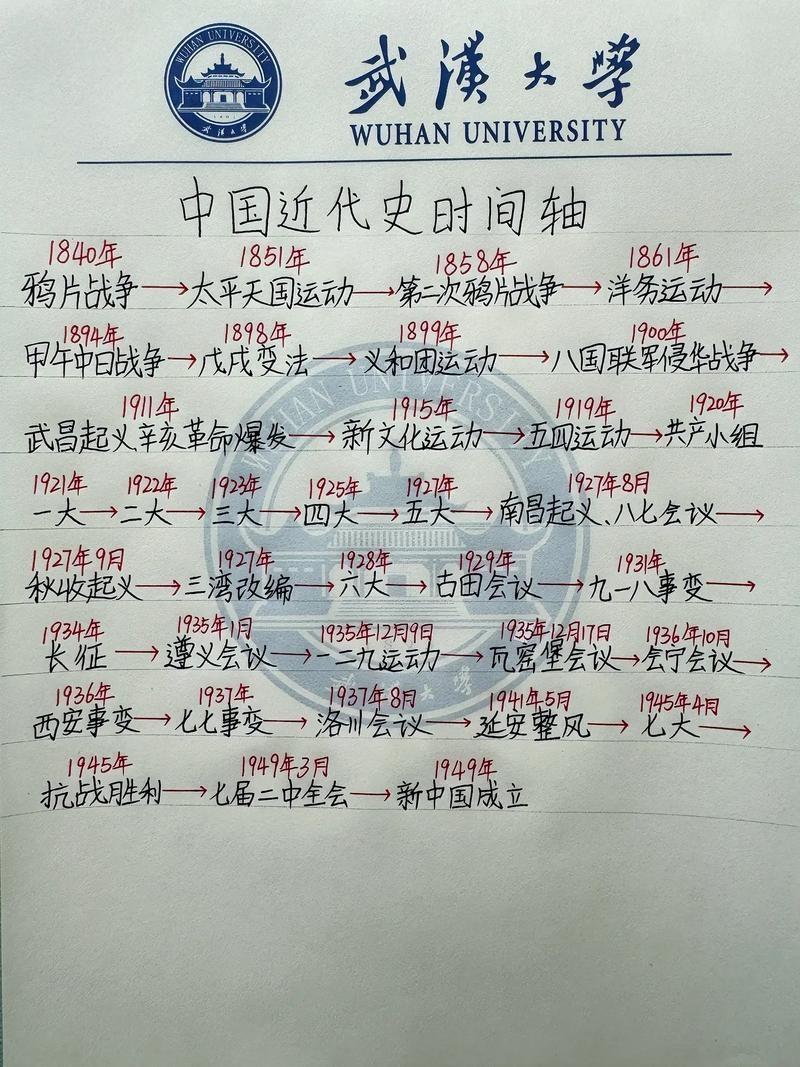 WUHAN UNIVERSITY
武汉大学
武漢大學
WUHAN UNIVERSITY
中国近代史时间轴
1840年 1851年 1858年 1861年
鸦片战争→太平天国运动→第二次鸦片战争→洋务运动→
1894年 1898年 1899年 1900年
甲午中日战争→戊戌变法→义和团运动→八国联军侵华战争→
1911年 1915年 1919年 1920年
武昌起义、辛亥革命爆发→新文化运动→五四运动→共产小组
1921年 1922年 1923年 1925年 1927年 1927年8月
一大→二大→三大→四大→五大→南昌起义、八七会议→
1927年9月 1927年 1928年 1929年 1931年
秋收起义→三湾改编→六大→古田会议→九一八事变→
1934年 1935年1月 1935年12月9日 1935年12月17日 1936年10月
长征→遵义会议→一二九运动→瓦窑堡会议→会宁会议→
1936年 1937年 1937年8月 1941年5月 1945年4月
西安事变→七七事变→洛川会议→延安整风→七大→
1945年 1949年3月 1949年
抗战胜利→七届二中全会→新中国成立
WUHAN UNIVERSITY
武漢大學